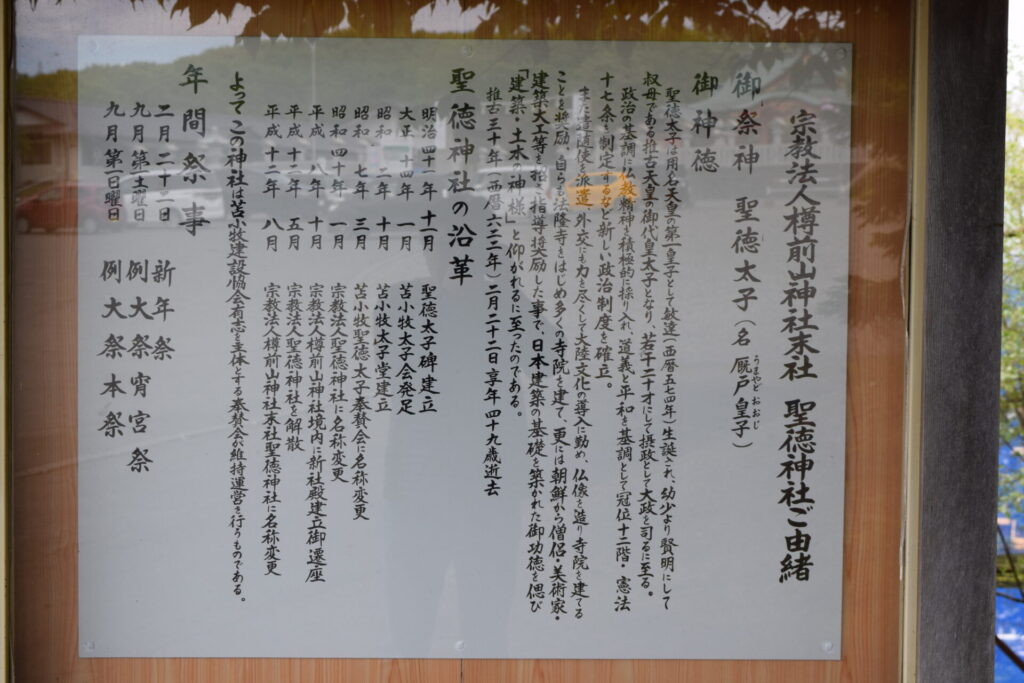 宗教法人樽前山神社末社 聖徳神社ご由緒
御祭神 聖徳太子（名 厩戸皇子）
うまやどおおじ
御神徳
聖徳太子は用明天皇の第一皇子として敏達（西暦五七四年）生誕され、幼少より賢明にして
叔母である推古天皇の御代皇太子となり、若干二十才にして摂政として大政を司るに至る。
政治の基調に仏教精神を積極的に採り入れ、道義と平和を基調として冠位十二階・憲法
十七条を制定するなど新しい政治制度を確立。
また遣隋使を派遣、外交にも力を尽くして大陸文化の導入に勤め、仏像を造り寺院を建てる
ことを奨励、自らも法隆寺をはじめ多くの寺院を建て、更には朝鮮から僧侶・美術家・
建築大工等を招き指導奨励した事で、日本建築の基礎を築かれた御功徳を偲び
「建築・土木の神様」と仰がれるに至ったのである。
推古三十年（西暦六二二年）二月二十二日享年四十九歳逝去
聖徳神社の沿革
明治四十一年 十一月 聖徳太子碑建立
大正 十四年 一月 苫小牧太子会発足
昭和 二年 十月 苫小牧太子堂建立
昭和 七年 三月 苫小牧聖徳太子奉賛会に名称変更
昭和四十年 一月 宗教法人聖徳神社に名称変更
平成 八年 十月 宗教法人樽前山神社境内に新社殿建立御遷座
平成十二年 五月 宗教法人聖徳神社を解散
平成十二年 八月 宗教法人樽前山神社末社聖徳神社に名称変更
よってこの神社は苫小牧建設協会有志を主体とする奉賛会が維持運営を行うものである。
年間祭事
二月二十二日 新年祭
九月第一土曜日 例大祭宵宮祭
九月第一日曜日 例大祭本祭